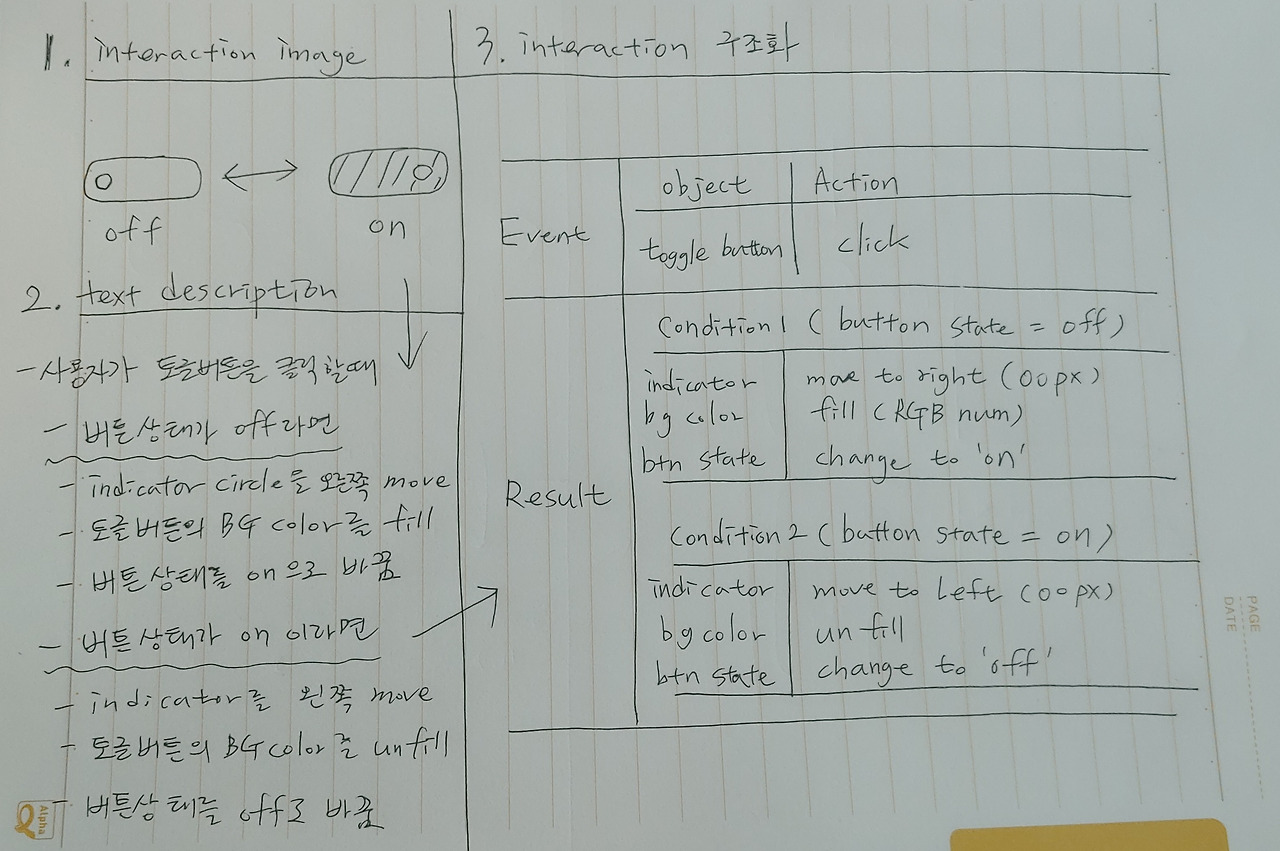 1. interaction image
off
on
2. text description
- 사용자가 토글버튼을 클릭할때
- 버튼상태가 off라면
- indicator circle을 오른쪽 move
- 토글버튼의 BG color를 fill
- 버튼상태를 on으로 바꿈
- 버튼상태가 on 이라면
- indicator를 왼쪽 move
- 토글버튼의 BG color를 unfill
- 버튼상태를 off로 바꿈
3. interaction 구조화
object Action
Event
toggle button click
Condition 1 (button state = off)
indicator move to right (00px)
bg color fill (RGB num)
btn state change to 'on'
Result
Condition 2 (button state = on)
indicator move to left (00px)
bg color unfill
btn state change to 'off'
PAGE
DATE
Alpha